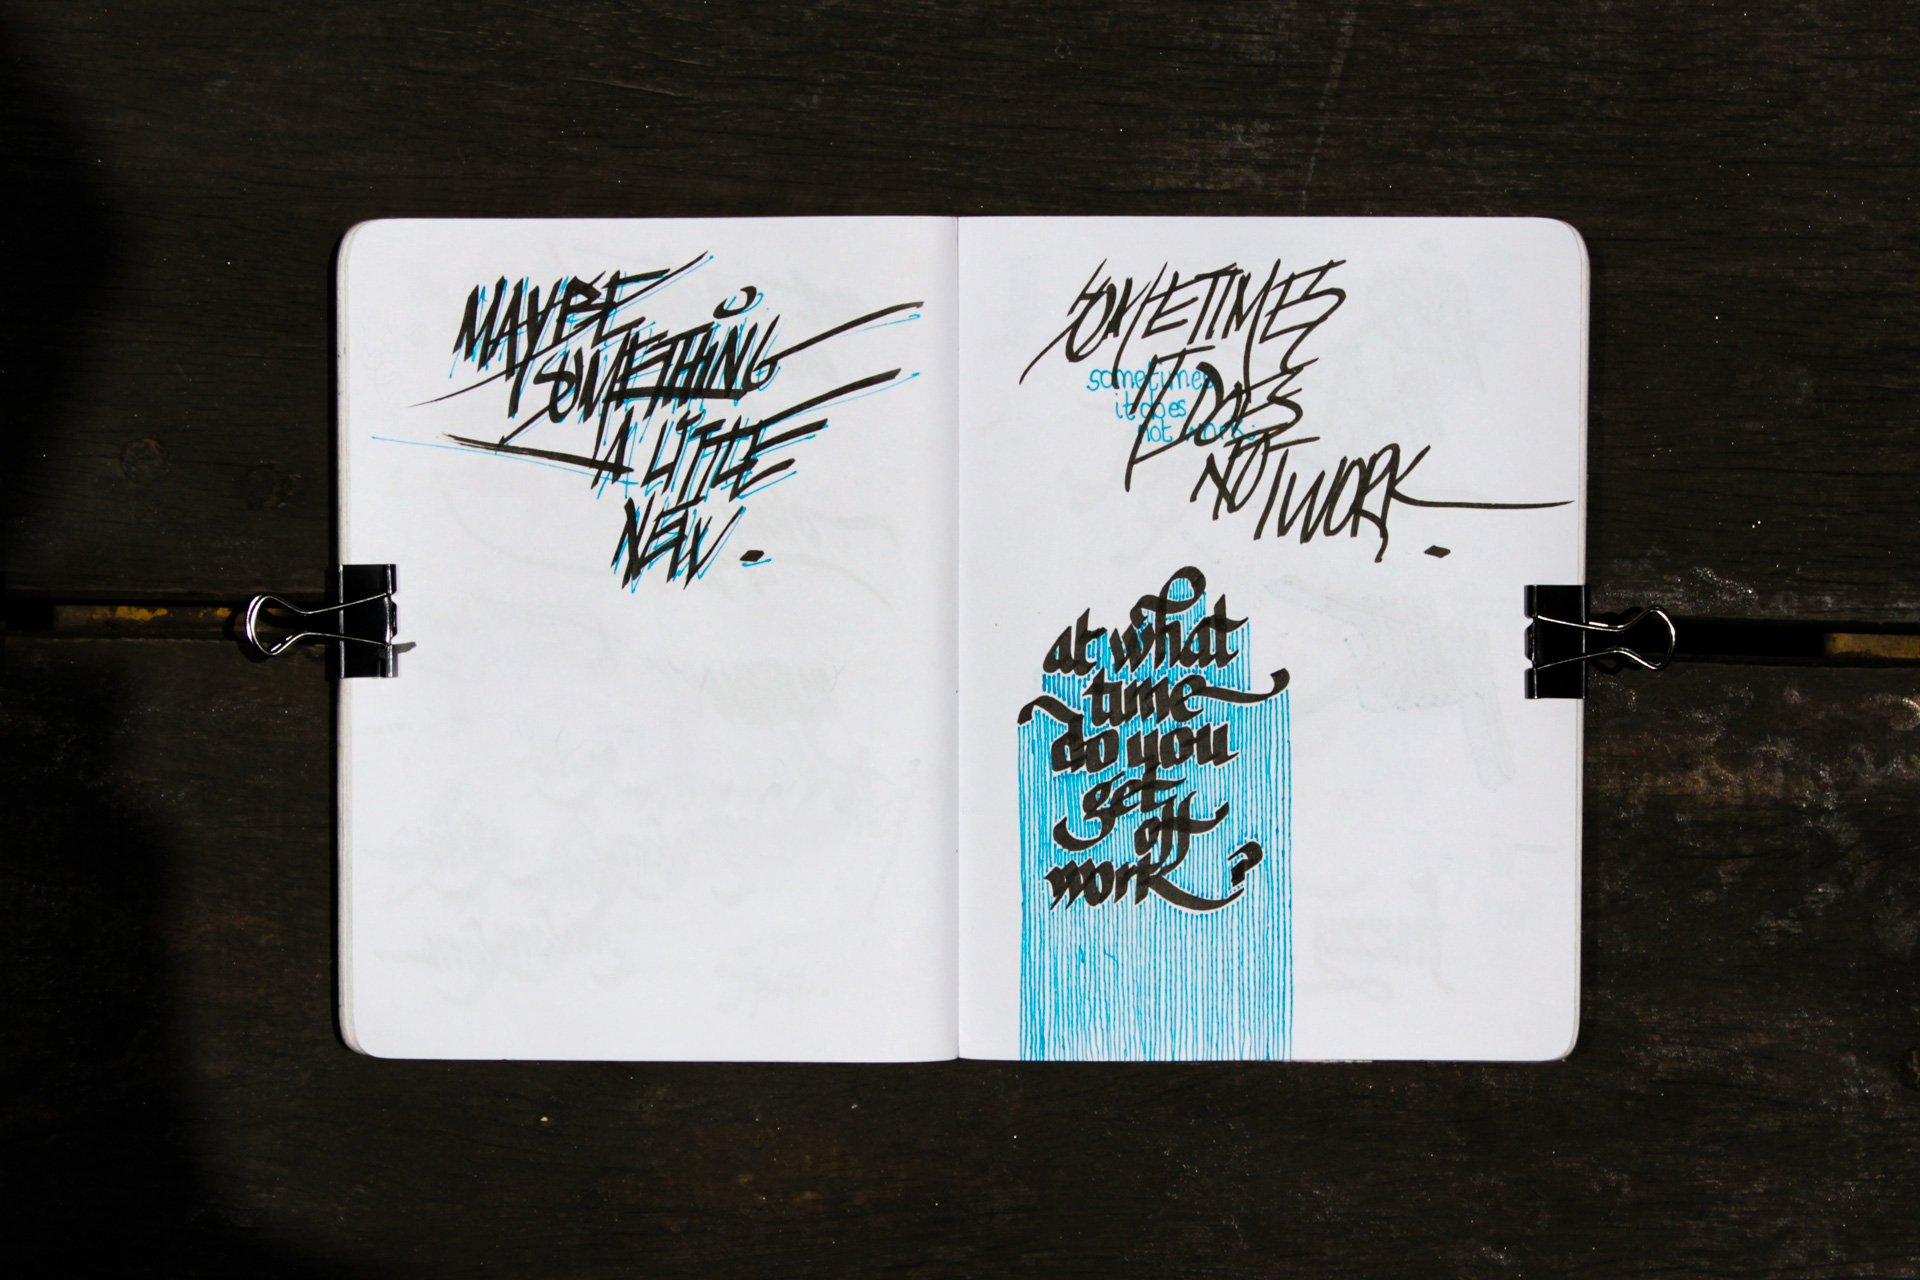 MAYBE
SOMETHING
A LITTLE
NEW.
SOMETIMES
IT DOES
NOT WORK.
sometimes
it does
not work.
at what
time
do you
get
off
work?